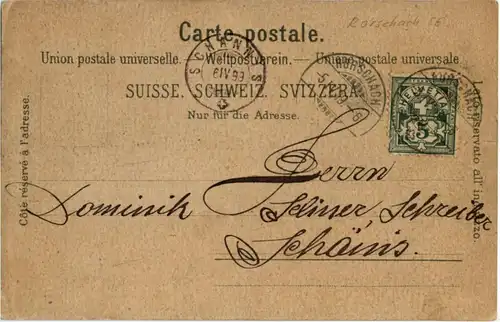 Rorschach SG.
Carte postale.
Union postale universelle. – Weltpostverein. – Unione postale universale
SUISSE. SCHWEIZ. SVIZZERA.
Nur für die Adresse.
Côté réservé à l'adresse.
Lato riservato all' indirizzo.
SCHÄNNIS
6 IV 99
RORSCHACH
HELVETIA
5
Herrn
Dominik Schreiber
Schänis.